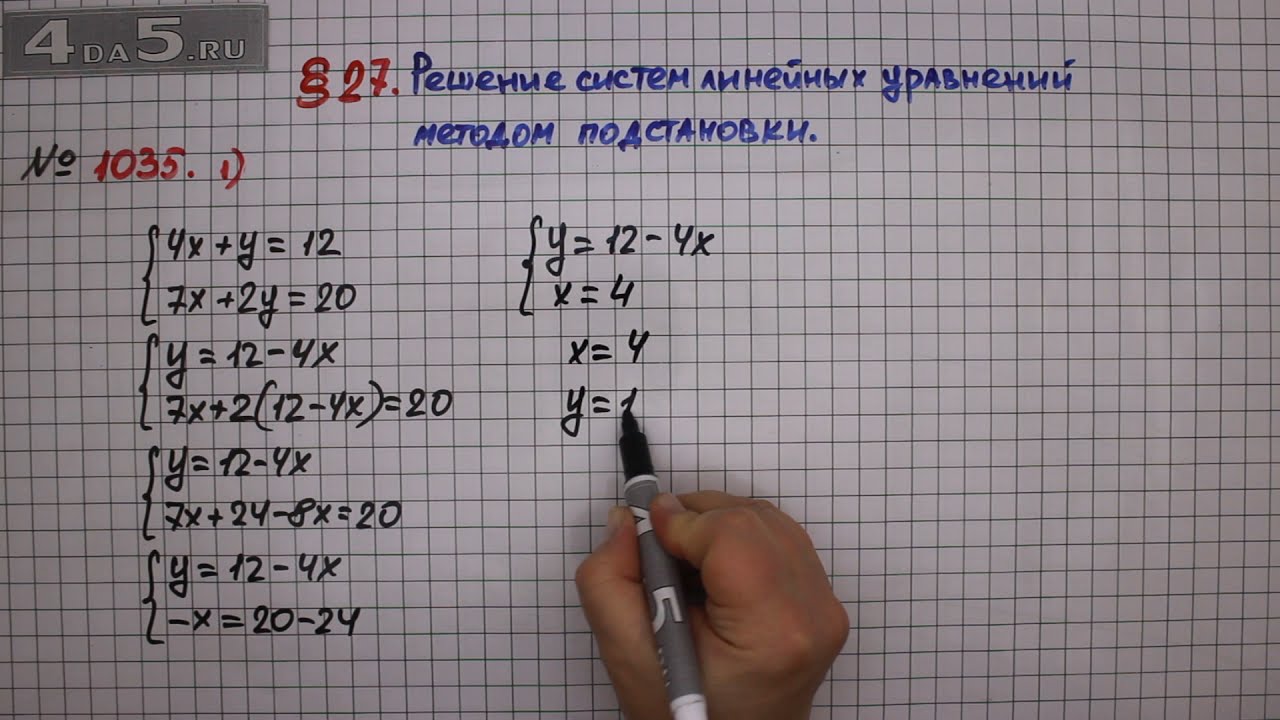 4DA5.RU
§ 27. Решение систем линейных уравнений
методом подстановки.
№ 1035. 1)
4x + y = 12
7x + 2y = 20
y = 12 - 4x
7x + 2(12 - 4x) = 20
y = 12 - 4x
7x + 24 - 8x = 20
y = 12 - 4x
-x = 20 - 24
y = 12 - 4x
x = 4
x = 4
y = 1